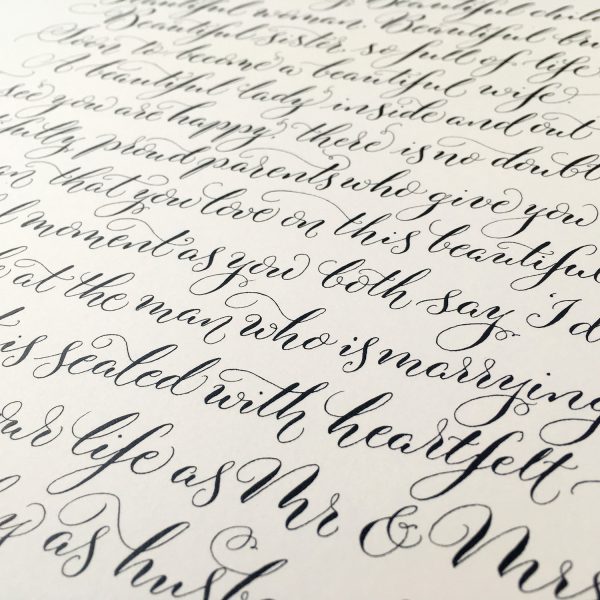 Beautiful
Beautiful woman. Beautiful
Beautiful sister so full of life
Soon to become a beautiful wife.
A beautiful lady inside and out
see you are happy, there is no doubt
proud parents who give you
that you love on this beautiful
moment as you both say 'I d
at the man who is marrying
is sealed with heartfelt
life as Mr & Mrs
as